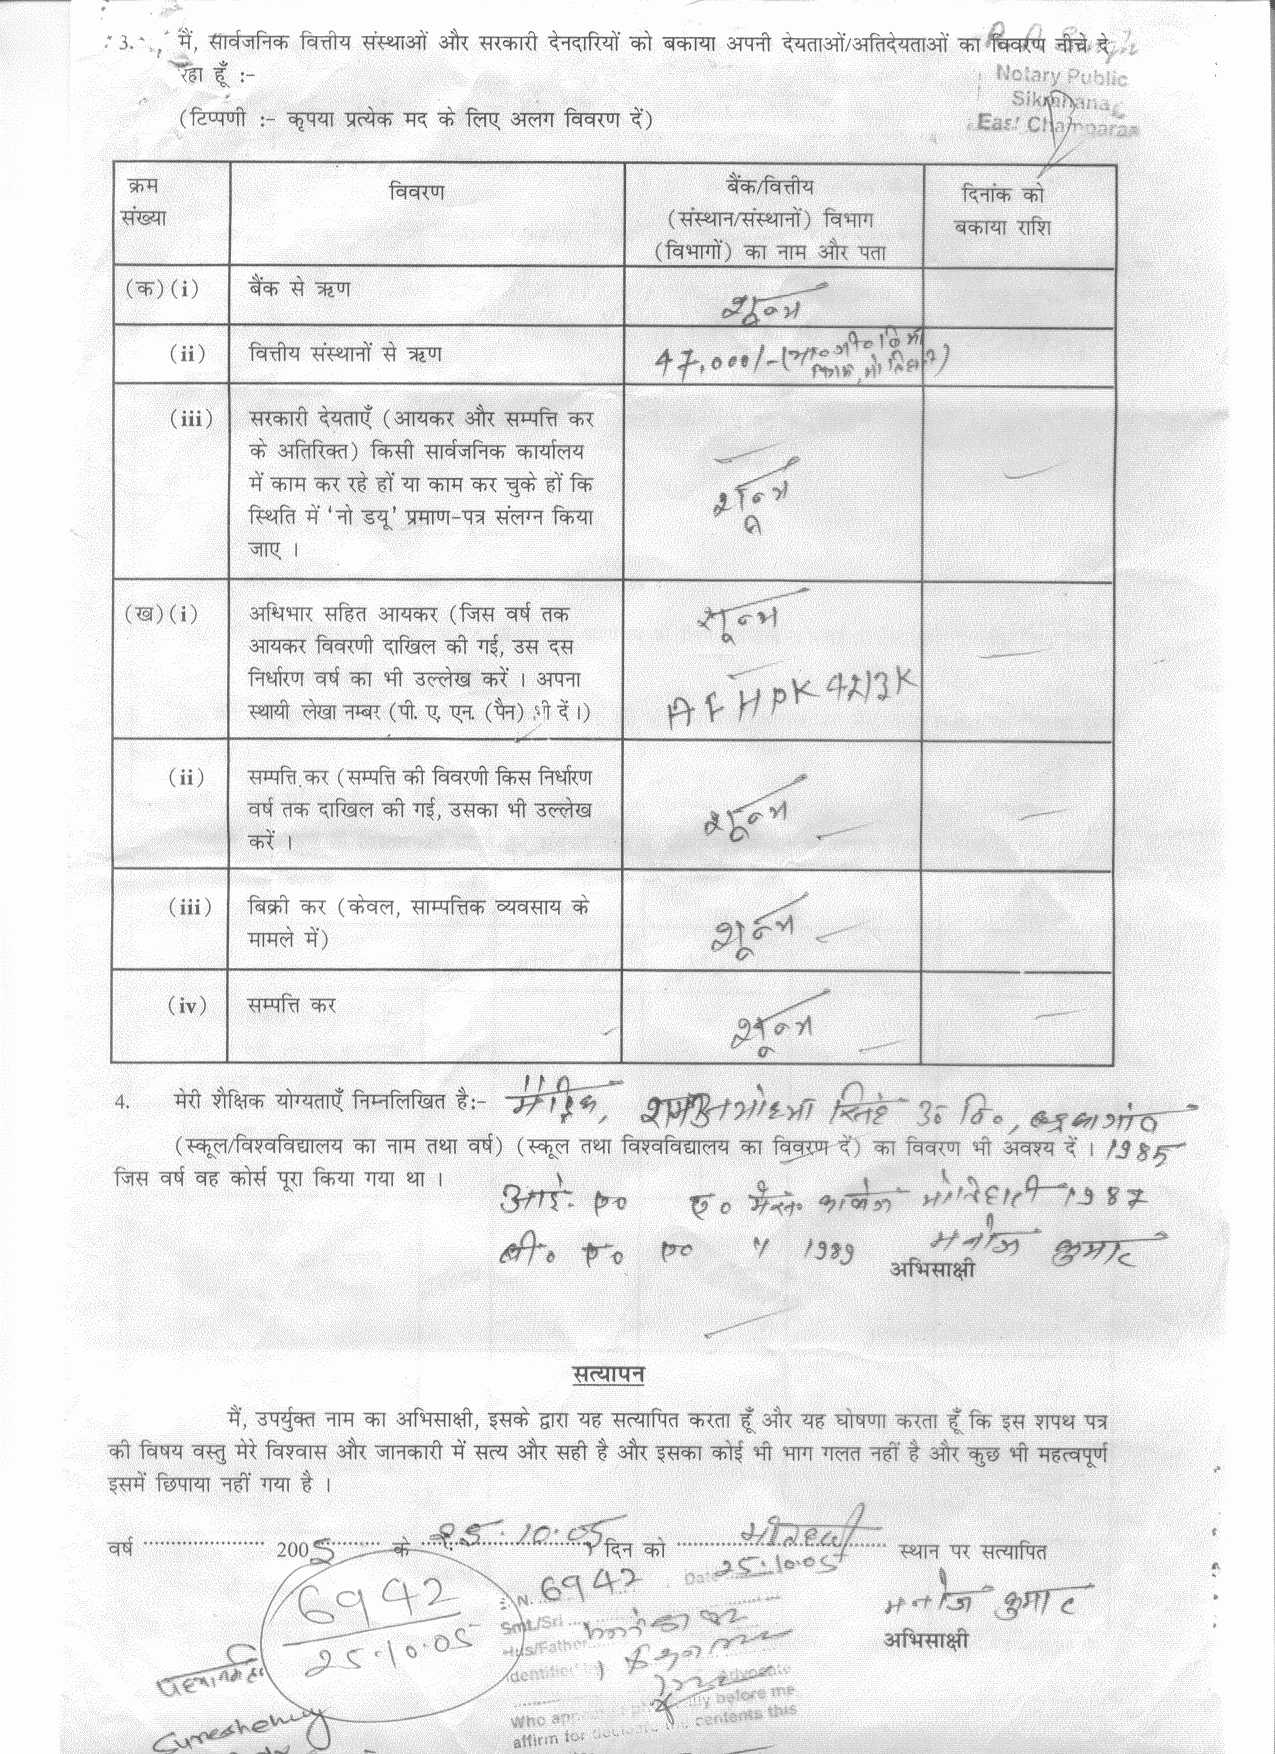 3. मैं, सार्वजनिक वित्तीय संस्थाओं और सरकारी देनदारियों को बकाया अपनी देयताओं/अतिदेयताओं का विवरण नीचे दे
रहा हूँ :-
Notary Public
Sikrahana
East Champaran
(टिप्पणी :- कृपया प्रत्येक मद के लिए अलग विवरण दें)
क्रम संख्या
विवरण
बैंक/वित्तीय
(संस्थान/संस्थानों) विभाग
(विभागों) का नाम और पता
दिनांक को
बकाया राशि
(क)(i) बैंक से ऋण शून्य
(ii) वित्तीय संस्थानों से ऋण 47,000/-
(iii) सरकारी देयताएँ (आयकर और सम्पत्ति कर
के अतिरिक्त) किसी सार्वजनिक कार्यालय
में काम कर रहे हों या काम कर चुके हों कि
स्थिति में 'नो डयू' प्रमाण-पत्र संलग्न किया
जाए ।
शून्य
(ख)(i) अधिभार सहित आयकर (जिस वर्ष तक
आयकर विवरणी दाखिल की गई, उस दस
निर्धारण वर्ष का भी उल्लेख करें । अपना
स्थायी लेखा नम्बर (पी. ए. एन. (पैन) भी दें।)
शून्य
AFHPK4213K
(ii) सम्पत्ति कर (सम्पत्ति की विवरणी किस निर्धारण
वर्ष तक दाखिल की गई, उसका भी उल्लेख
करें ।
शून्य
(iii) बिक्री कर (केवल, साम्पत्तिक व्यवसाय के
मामले में)
शून्य
(iv) सम्पत्ति कर शून्य
4. मेरी शैक्षिक योग्यताएँ निम्नलिखित है:- मैट्रिक, सिंह उ० वि०,
(स्कूल/विश्वविद्यालय का नाम तथा वर्ष) (स्कूल तथा विश्वविद्यालय का विवरण दें) का विवरण भी अवश्य दें । 1985
जिस वर्ष वह कोर्स पूरा किया गया था ।
आई. ए० मोतिहारी 1987
बी० ए० 1989 मनोज कुमार
अभिसाक्षी
सत्यापन
मैं, उपर्युक्त नाम का अभिसाक्षी, इसके द्वारा यह सत्यापित करता हूँ और यह घोषणा करता हूँ कि इस शपथ पत्र
की विषय वस्तु मेरे विश्वास और जानकारी में सत्य और सही है और इसका कोई भी भाग गलत नहीं है और कुछ भी महत्वपूर्ण
इसमें छिपाया नहीं गया है ।
वर्ष 2005 के 25.10.05 दिन को मोतिहारी स्थान पर सत्यापित
6942
25.10.05
N. 6942 Date 25.10.05
Smt./Sri
Hus/Father
Identified
Advocate
मनोज कुमार
अभिसाक्षी
before me
affirm the contents this